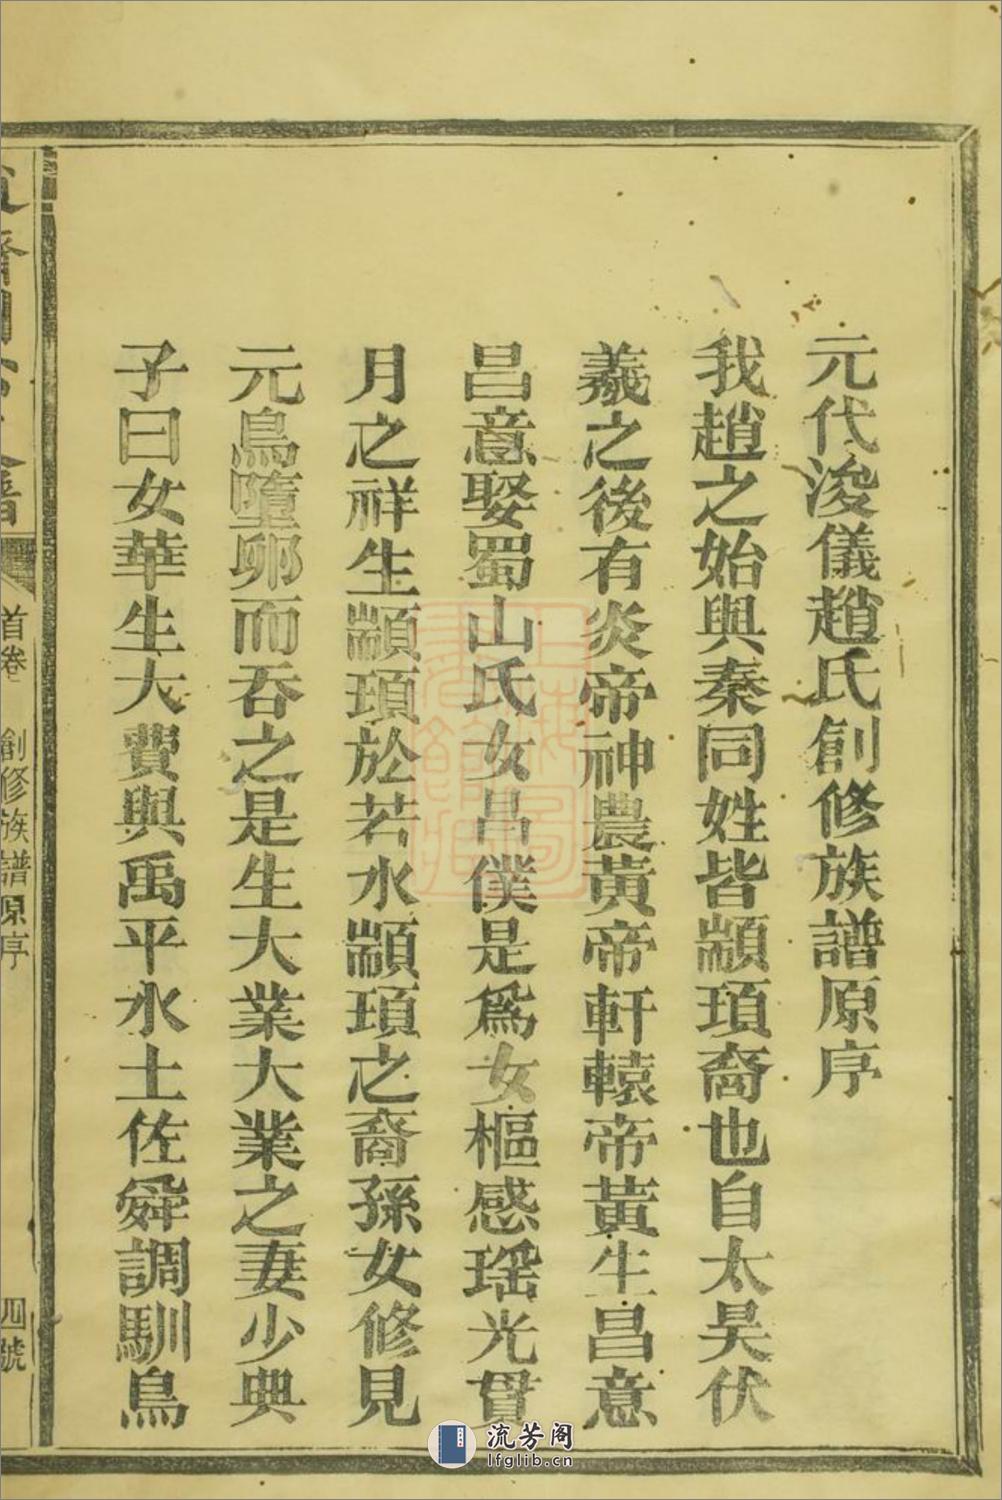 元代浚儀趙氏創修族譜原序
我趙之始與秦同姓皆顓頊裔也自太昊伏
羲之後有炎帝神農黃帝軒轅帝黃生昌意
昌意娶蜀山氏女昌僕是爲女樞感瑤光貫
月之祥生顓頊於若水顓頊之裔孫女修見
元鳥墮卵而吞之是生大業大業之妻少典
子曰女華生大費與禹平水土佐舜調馴鳥
首卷
創修族譜原序
四號
上海圖書館藏
流芳阁
lfglib.cn